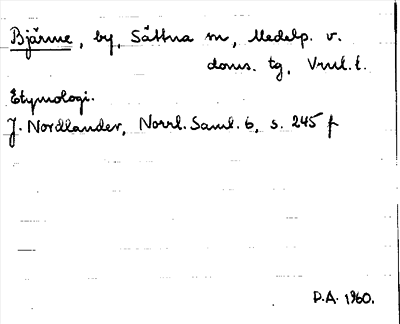 Bjärme, by, Sättna sn, Medelp. v.
doms. tg, Vnl. l.
Etymologi.
J. Nordlander, Norrl. Saml. 6, s. 245 f
D.A. 1960.